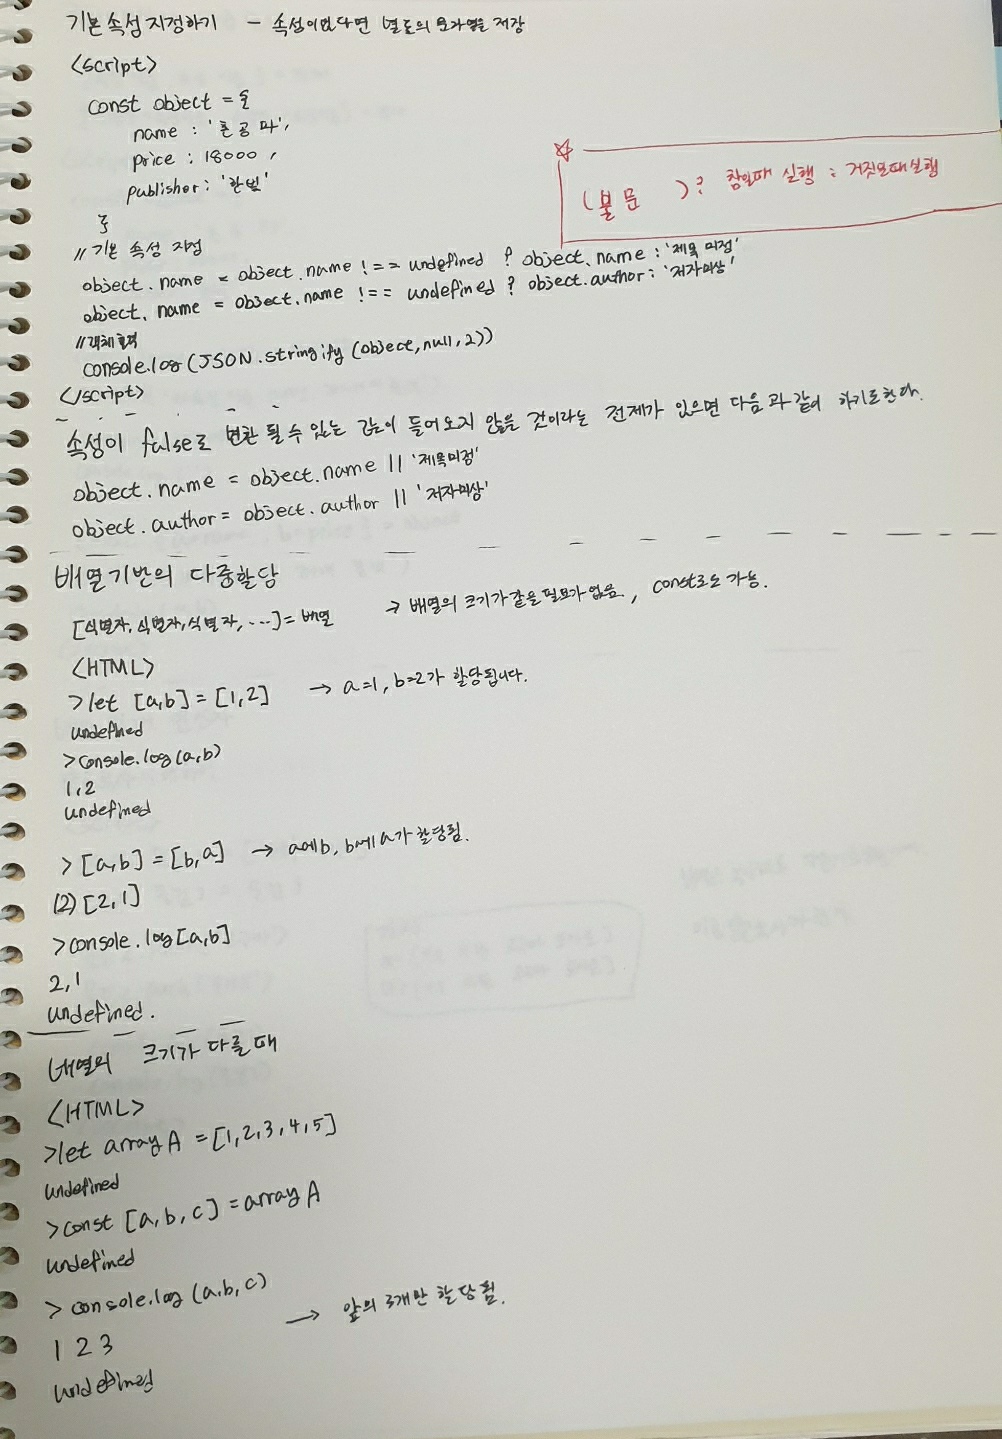 기본 속성 지정하기 - 속성이 없다면 별도의 문자열을 저장
<script>
const object = {
name : '혼공파',
price : 18000,
publisher : '한빛'
}
☆
(불문 )? 참일때 실행 : 거짓일때 실행
// 기본 속성 지정
object.name = object.name !== undefined ? object.name : '제목 미정'
object.name = object.name !== undefined ? object.author : '저자미상'
// 객체 출력
console.log(JSON.stringify(object,null,2))
</script>
속성이 false로 변환 될 수 있는 값이 들어오지 않을 것이라는 전제가 있으면 다음과 같이 하기도 한다.
object.name = object.name || '제목미정'
object.author = object.author || '저자미상'
배열기반의 다중할당
[식별자, 식별자, 식별자, ...] = 배열 → 배열의 크기가 같을 필요가 없음, const로도 가능.
<HTML>
>let [a,b] = [1,2] → a=1, b=2가 할당됩니다.
undefined
>console.log(a,b)
1,2
undefined
> [a,b] = [b,a] → a에 b, b에 a가 할당됨.
(2) [2,1]
>console.log[a,b]
2,1
undefined.
배열의 크기가 다를 때
<HTML>
>let arrayA = [1,2,3,4,5]
undefined
>const [a,b,c] = arrayA
undefined
> console.log(a,b,c)
1 2 3 → 앞의 3개만 할당됨.
undefined